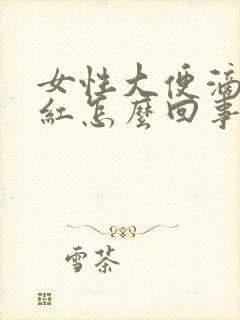 女性大便滴
紅怎麼回事
雪茶